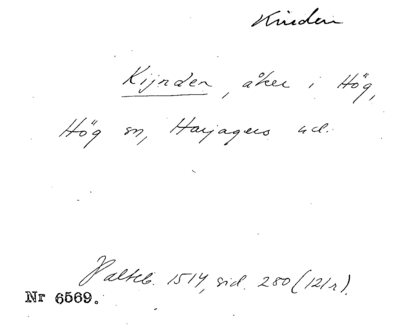 Kinden
Kijnden, åker i Hög,
Hög sn, Harjagers hd.
Palteb. 1514, sid. 280 (12/1).
Nr 6569.